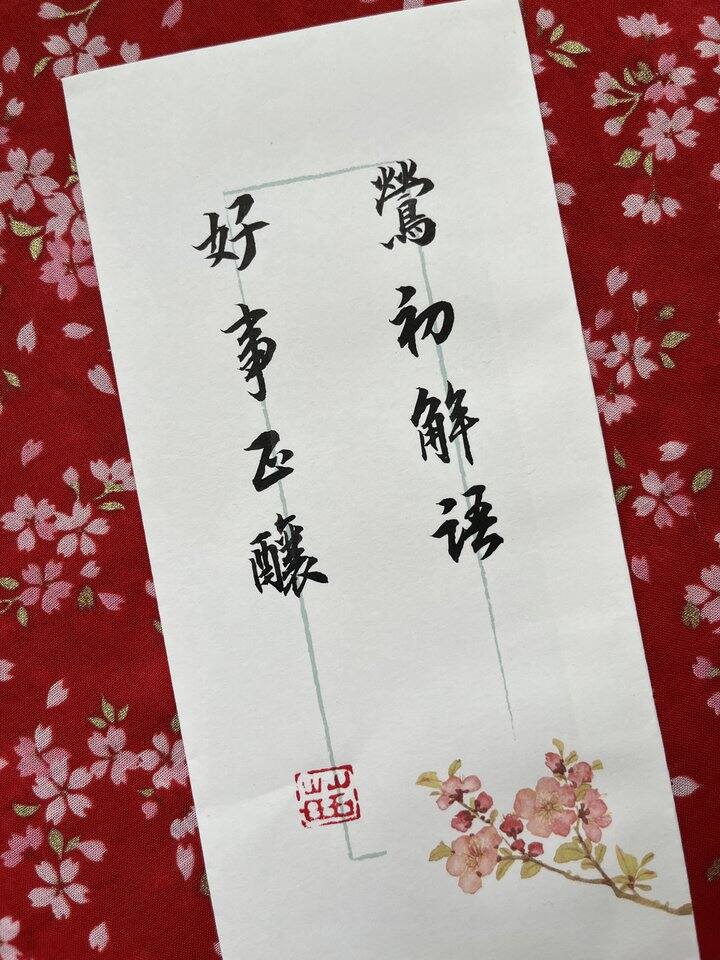 鶯初解语
好事正釀